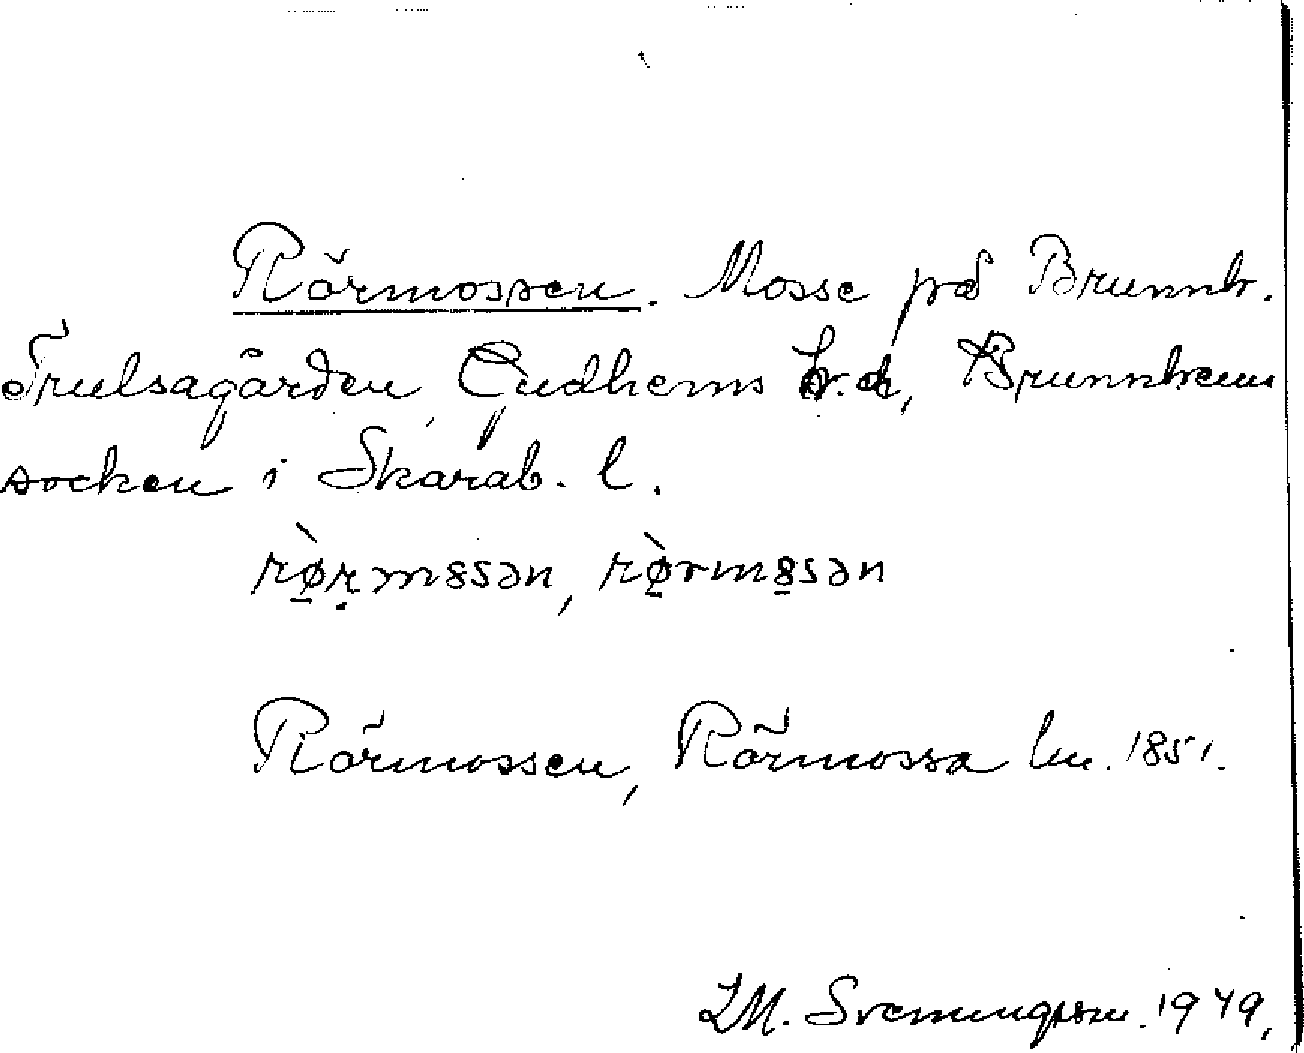 Rörmossen. Mosse på Brunnh.
Trulsagården, Gudhems h.d, Brunnhems
socken i Skarab. l.
rø̀ṛmɞsən, rø̀rmɞsən
Rörmossen, Rörmossa lm. 1851.
LM. Svenungsson. 1949.